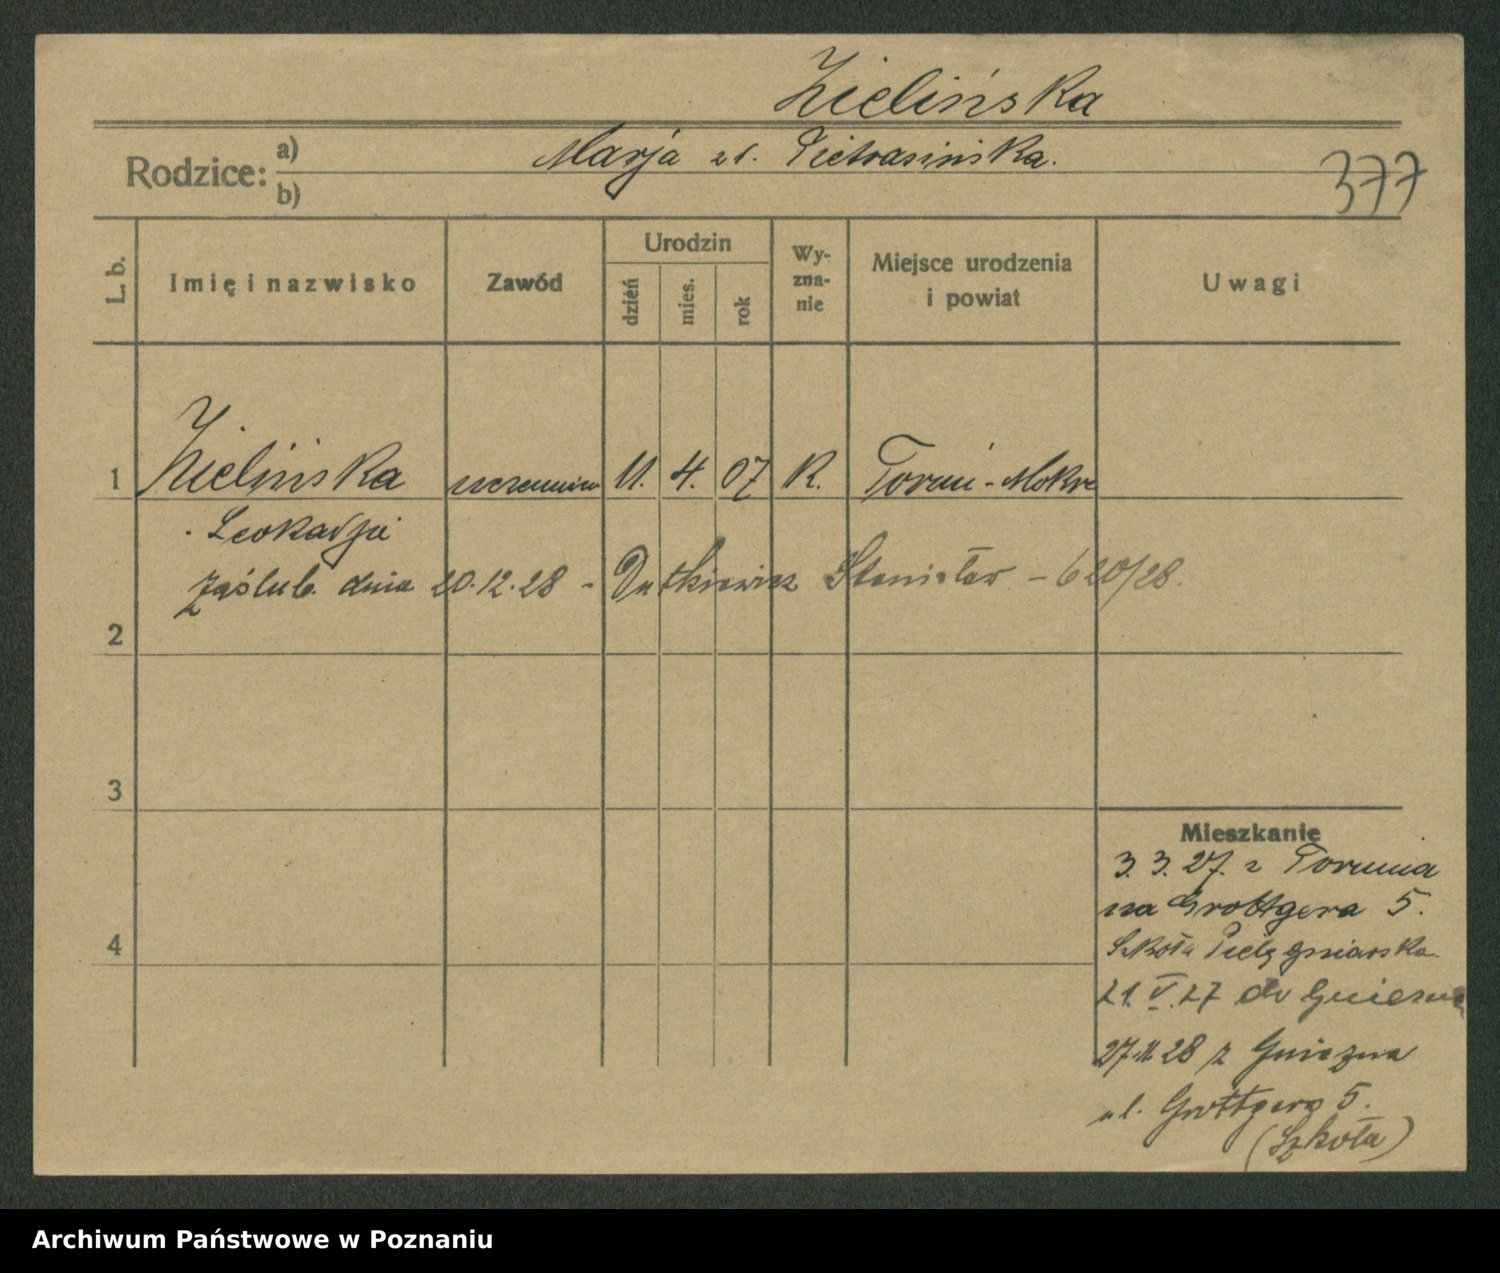 Zielińska
Rodzice: a) Marja z d. Pietrasińska.
b)
377
L. b. Imię i nazwisko Zawód Urodzin dzień mies. rok Wyznanie Miejsce urodzenia i powiat Uwagi
1 Zielińska uczennica 11. 4. 07 R. Toruń-Mokre
Leokadja
zaślub. dnia 20.12.28 - Dutkiewicz Stanisław - 620/28.
2
3
4
Mieszkanie
3. 3. 27. z Torunia
na Grottgera 5.
Szkoła Pielęgniarska.
21. V. 27 do Gniezna
27.11.28 z Gniezna
ul. Grottgera 5.
(Szkoła)
Archiwum Państwowe w Poznaniu